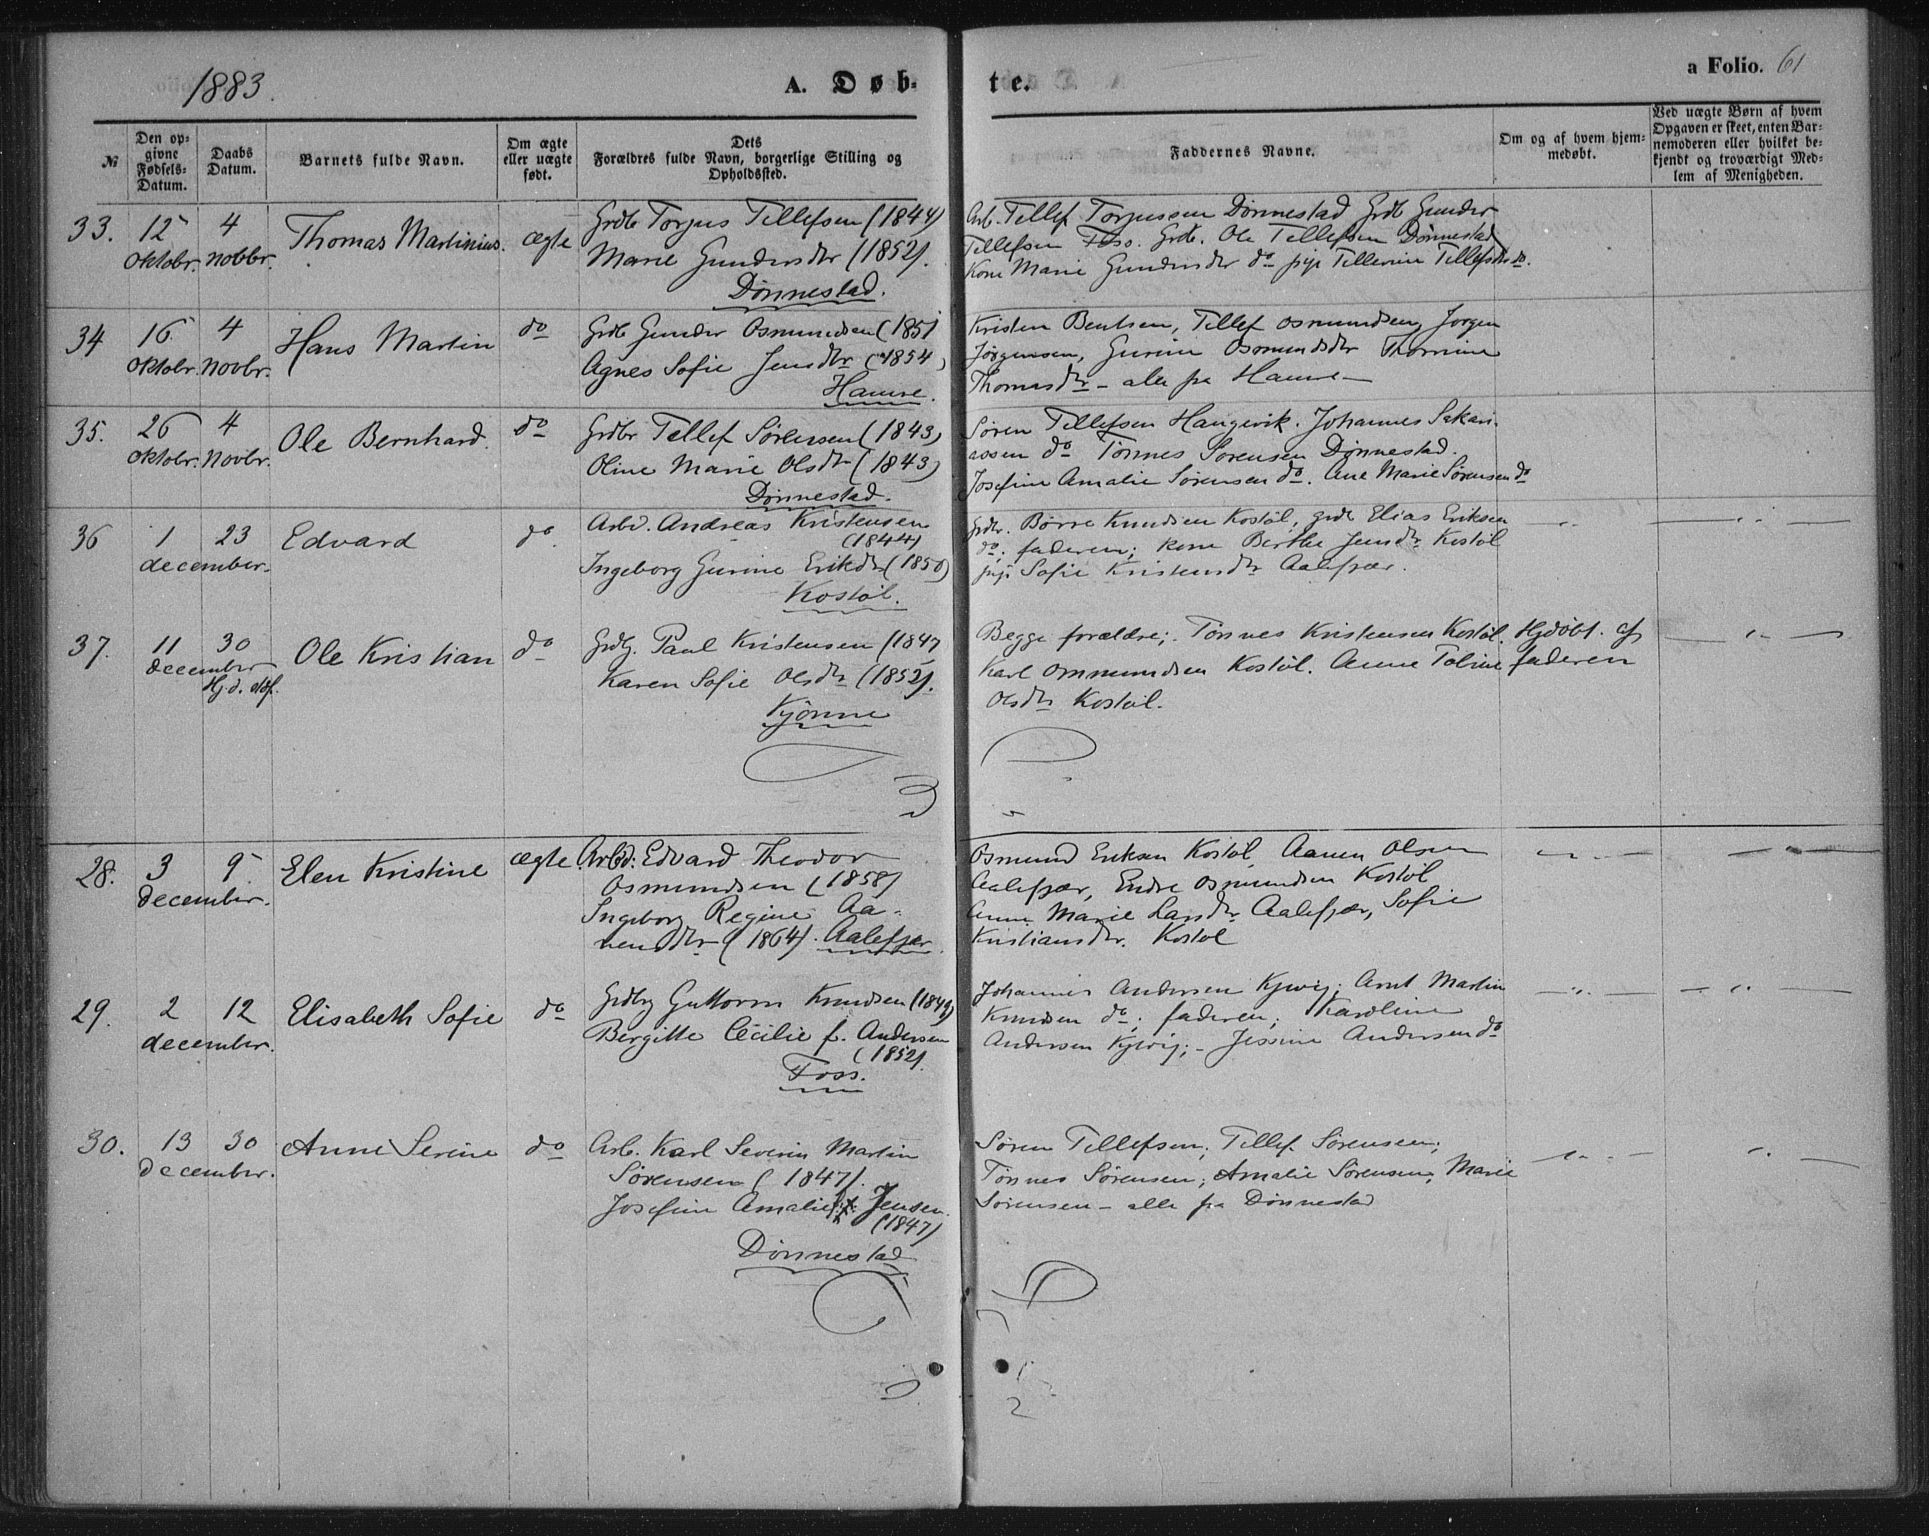 1883.
A. Døb-
te.
a Folio. 61
№
Den op-
givne
Fødsels-
Datum.
Daabs
Datum.
Barnets fulde Navn.
Om ægte
eller uægte
født.
Dets
Forældres fulde Navn, borgerlige Stilling og
Opholdssted.
Faddernes Navne.
Om og af hvem hjem-
medøbt.
Ved uægte Børn af hvem
Opgaven er skeet, enten Bar-
nemoderen eller hvilket be-
kjendt og troværdigt Med-
lem af Menigheden.
33. 12 4 Thomas Martinius. ægte
oktobr. nobbr.
Grdb Torjus Tellefsen (1844)
Marie Gundersdtr (1852).
Dönnestad.
Arb. Tellef Torjussen Dönnestad Grdb Gunder
Tellefsen Foss. Grdb. Ole Tellefsen Dönnestad
Kone Marie Gundersdtr do pige Tellerine Tellefsdtr do.
34 16 4 Hans Martin do
oktobr. novbr.
Grdb Gunder Osmundsen (1851
Agnes Sofie Jensdtr (1854)
Hamre.
Kristen Bentsen, Tellef Osmundsen, Jörgen
Jörgensen, Gurine Osmundsdtr Thomine
Thomasdtr - alle fra Hamre -
35. 26 4 Ole Bernhard do
oktobr. Novbr.
Grdbr Tellef Sörensen (1843)
Oline Marie Olsdtr (1843)
Dönnestad.
Sören Tellefsen Haugevik. Johannes Sakari-
assen do Tönnes Sörensen Dönnestad.
Josefine Amalie Sörensen do. Ane Marie Sörensen do
36 1 23 Edvard do.
december.
Arbd. Andreas Kristensen
(1844)
Ingeborg Gurine Eriksdtr (1850)
Kostöl.
Grdbr. Börre Knudsen Kostöl, grdb Elias Eriksen
do; faderen; kone Berthe Jensdtr Kostöl
pige Sofie Kristensdtr Aalefjær.
37. 11 30 Ole Kristian do
december
Grdb. Paul Kristensen (1847
Karen Sofie Olsdtr (1852).
Kjönne
Begge forældre; Tönnes Kristensen Kostöl.
Karl Ommundsen Kostöl. Anne Toline
Olsdtr Kostöl.
Hjdöbt. af
faderen
28. 3 9 Elen Kristine ægte
december.
Arbd: Edvard Theodor
Osmundsen (1858)
Ingeborg Regine Aa-
nensdtr (1864). Aalefjær.
Osmund Eriksen Kostöl, Aanen Olsen
Aalefjær, Endre Osmundsen Kostöl
Anne Marie Larsdtr Aalefjær, Sofie
Kristiansdtr. Kostöl
29. 2 12 Elisabeth Sofie do
december.
Grdbr Guttorm Knudsen (1849)
Bergitte Cecilie f. Andersen
(1852).
Foss.
Johannes Andersen Kjevig; Arnt Martin
Knudsen do; faderen; Karoline
Andersen Kjevig; - Jessine Andersen do
30. 13 30 Anne Serine do
december.
Arb. Karl Severin Martin
Sörensen (1847).
Josefine Amalie Jensen.
(1847)
Dönnestad
Sören Tellefsen; Tellef Sörensen;
Tönnes Sörensen; Amalie Sörensen, Marie
Sörensen - alle fra Dönnestad